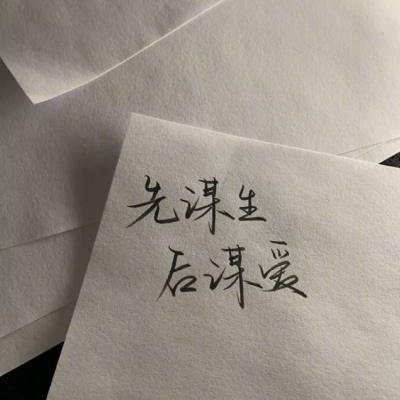 先谋生
后谋爱